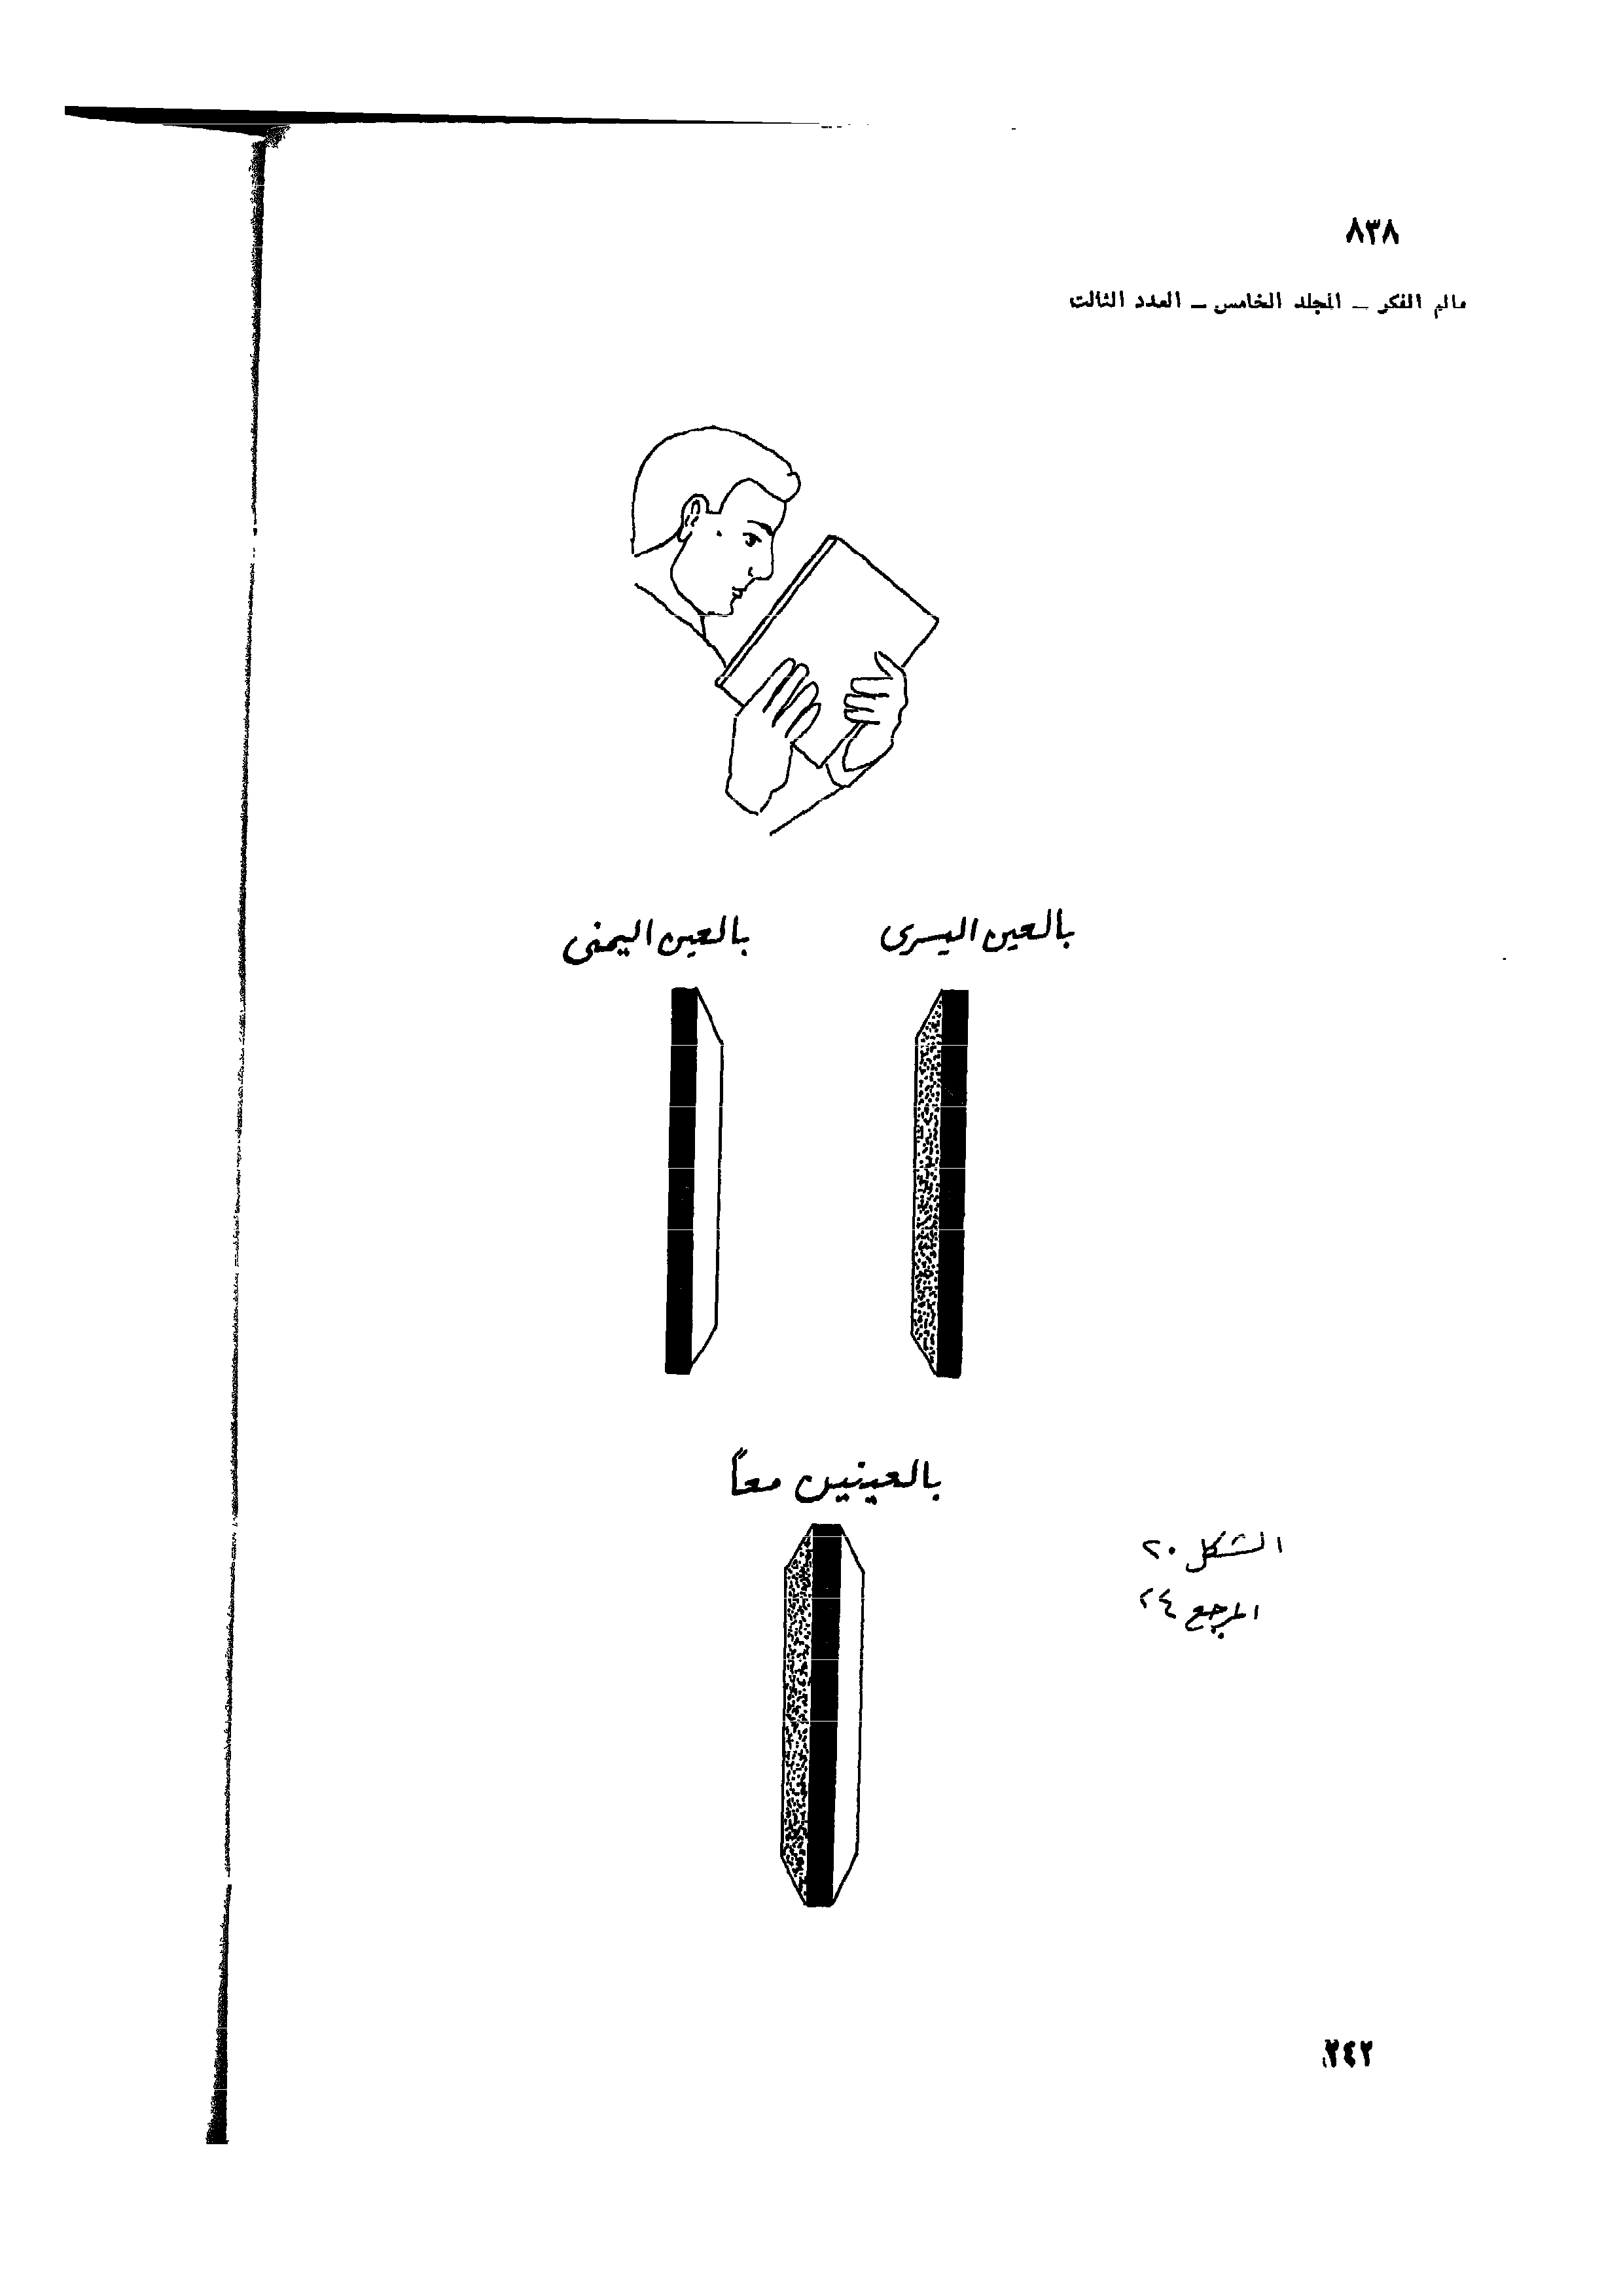 ٨٣٨
عالم الفكر – المجلد الخامس – العدد الثالث
بالعين اليسرى
بالعين اليمنى
بالعينين معاً
الشكل ٢٠
المرجع ٢٤
٢٤٢